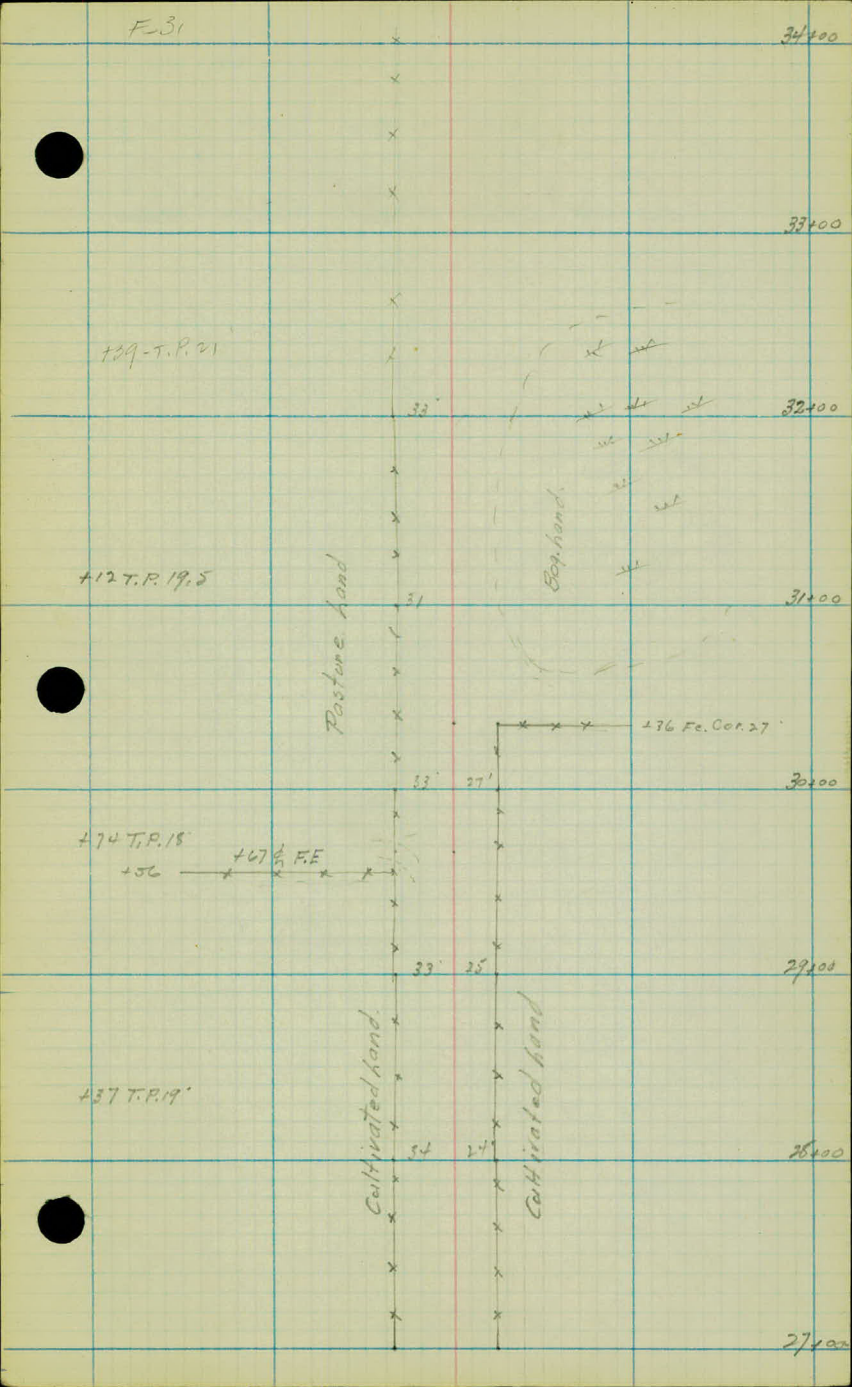 F-31
34+00
33+00
+39-T.P. 21'
33'
32+00
Bog. Land.
+12 T.P. 19.5
31
31+00
Pasture Land
+36 Fe. Cor. 27'
33' 27'
30+00
+74 T.P. 18'
+67 ⅊ F.E
+56
33' 25
29+00
Cultivated Land.
Cultivated Land
+37 T.P. 19'
34 24
28+00
27+00